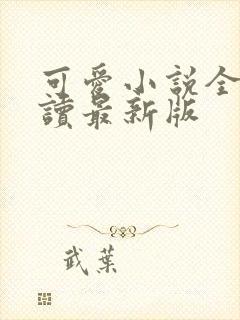 可愛小說全
讀最新版
武葉